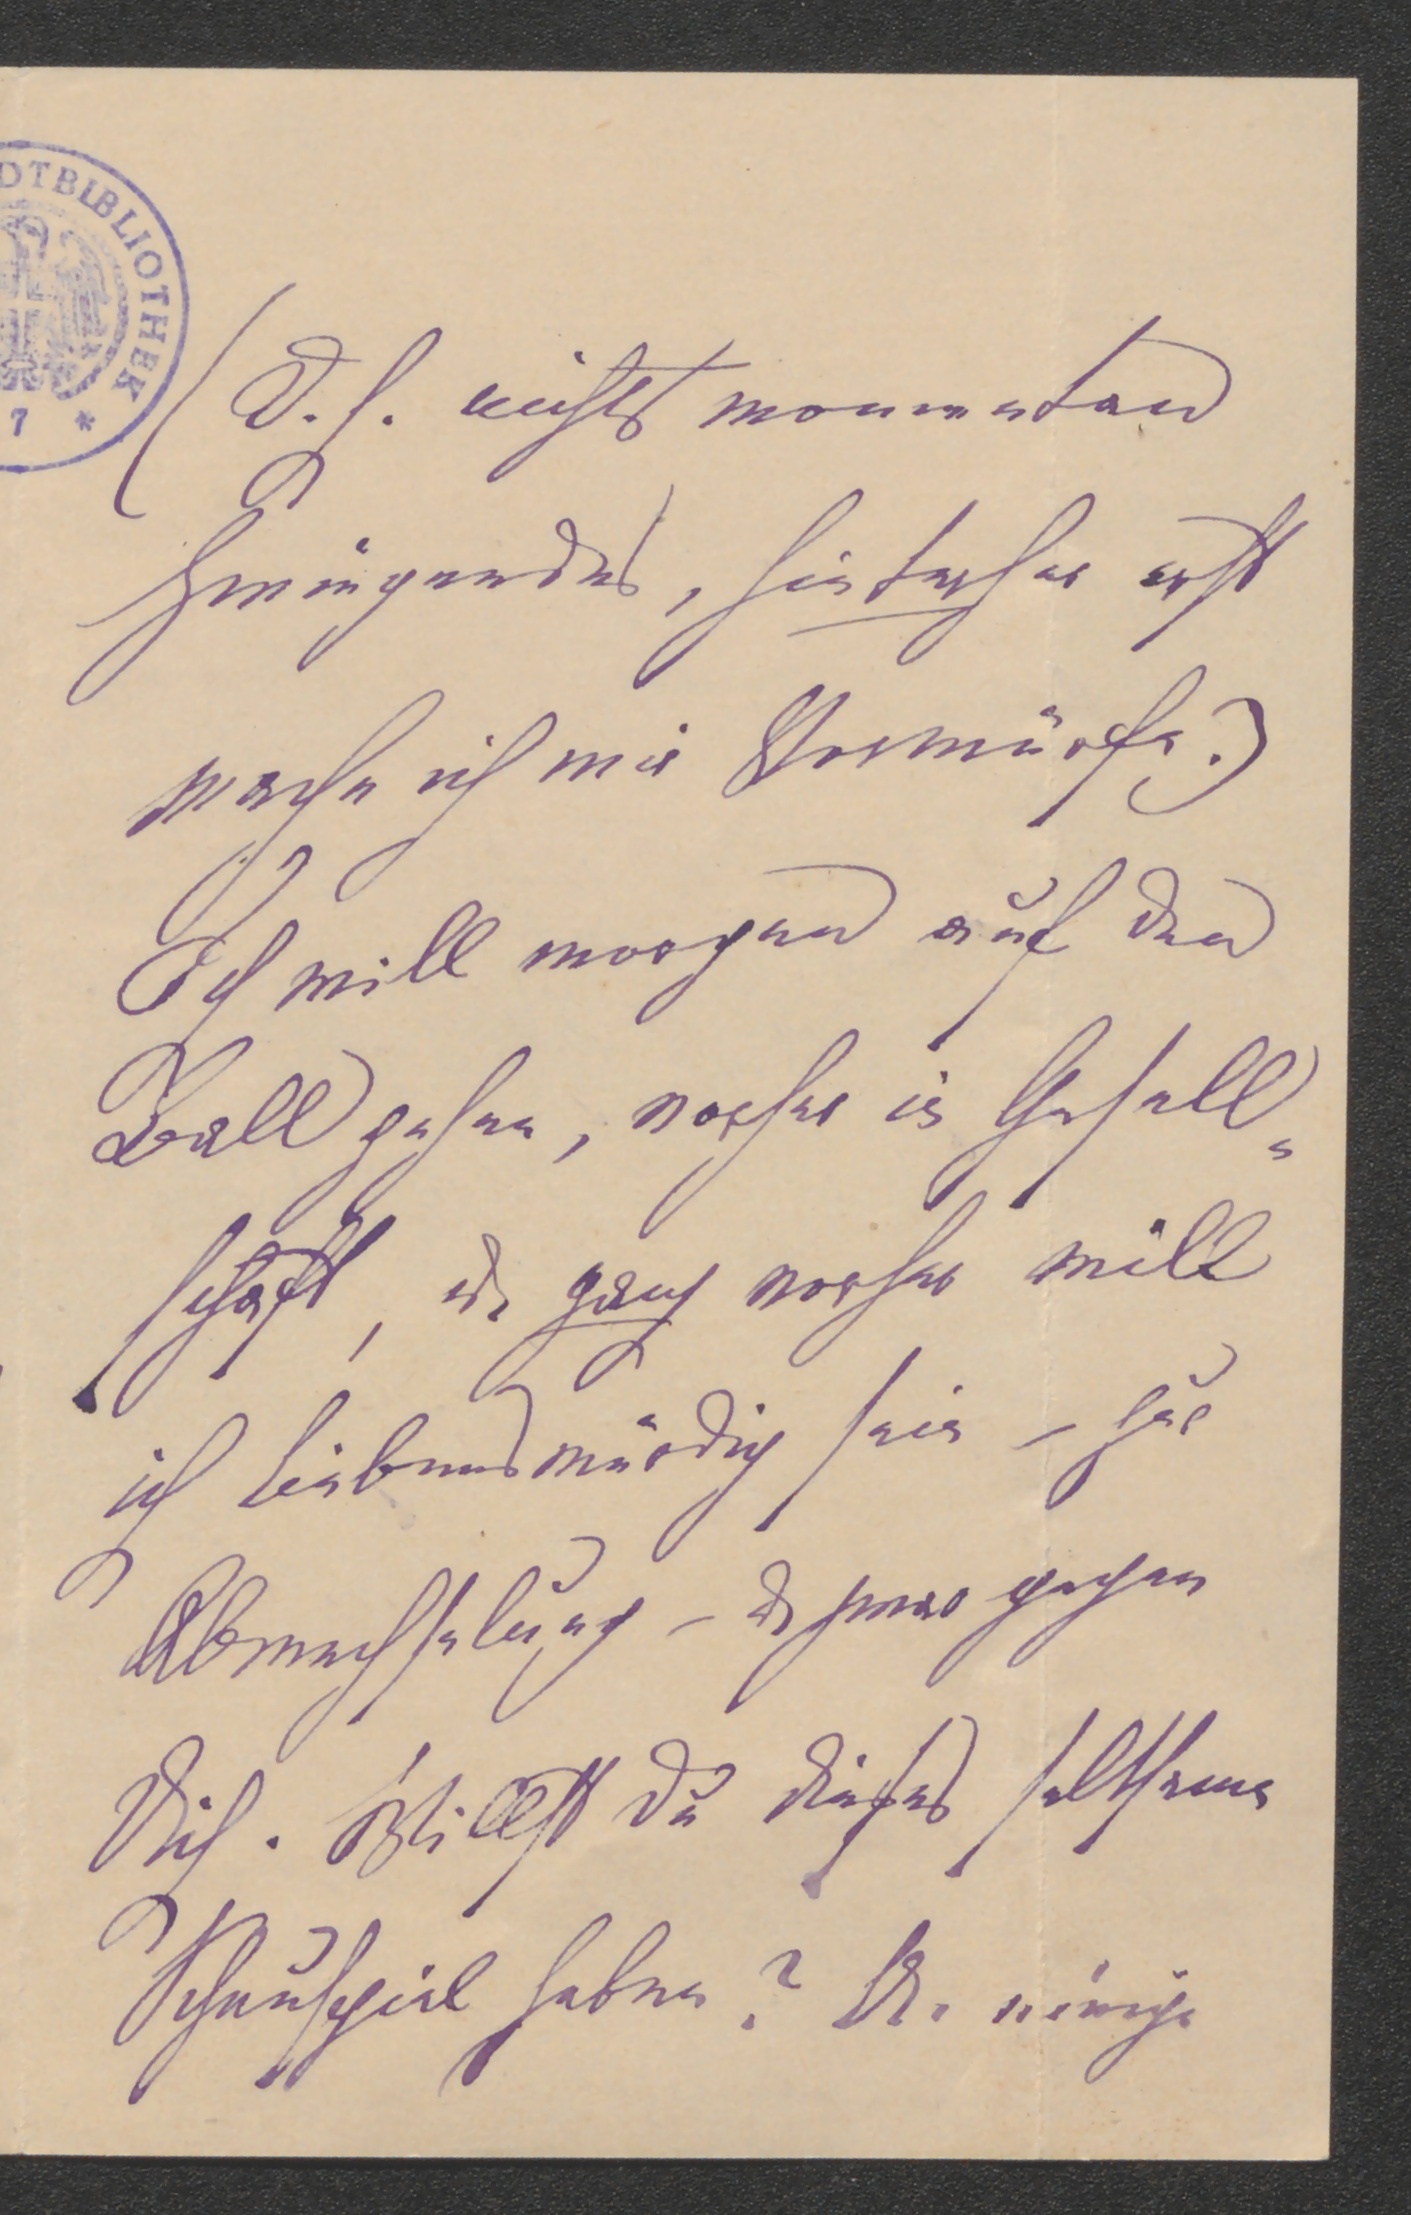 DTBIBLIOTHEK
7 *
(D. h. nichts momentan
Zwingendes, hinterher erst
mache ich mir Vorwürfe.)
Ich will morgen auf den
Ball gehen, vorher in Gesell-
schaft, u. ganz vorher will
ich liebenswürdig sein – zur
Abwechselung – u. zwar gegen
Dich. Willst Du dieses seltsame
Schauspiel haben? U. einige